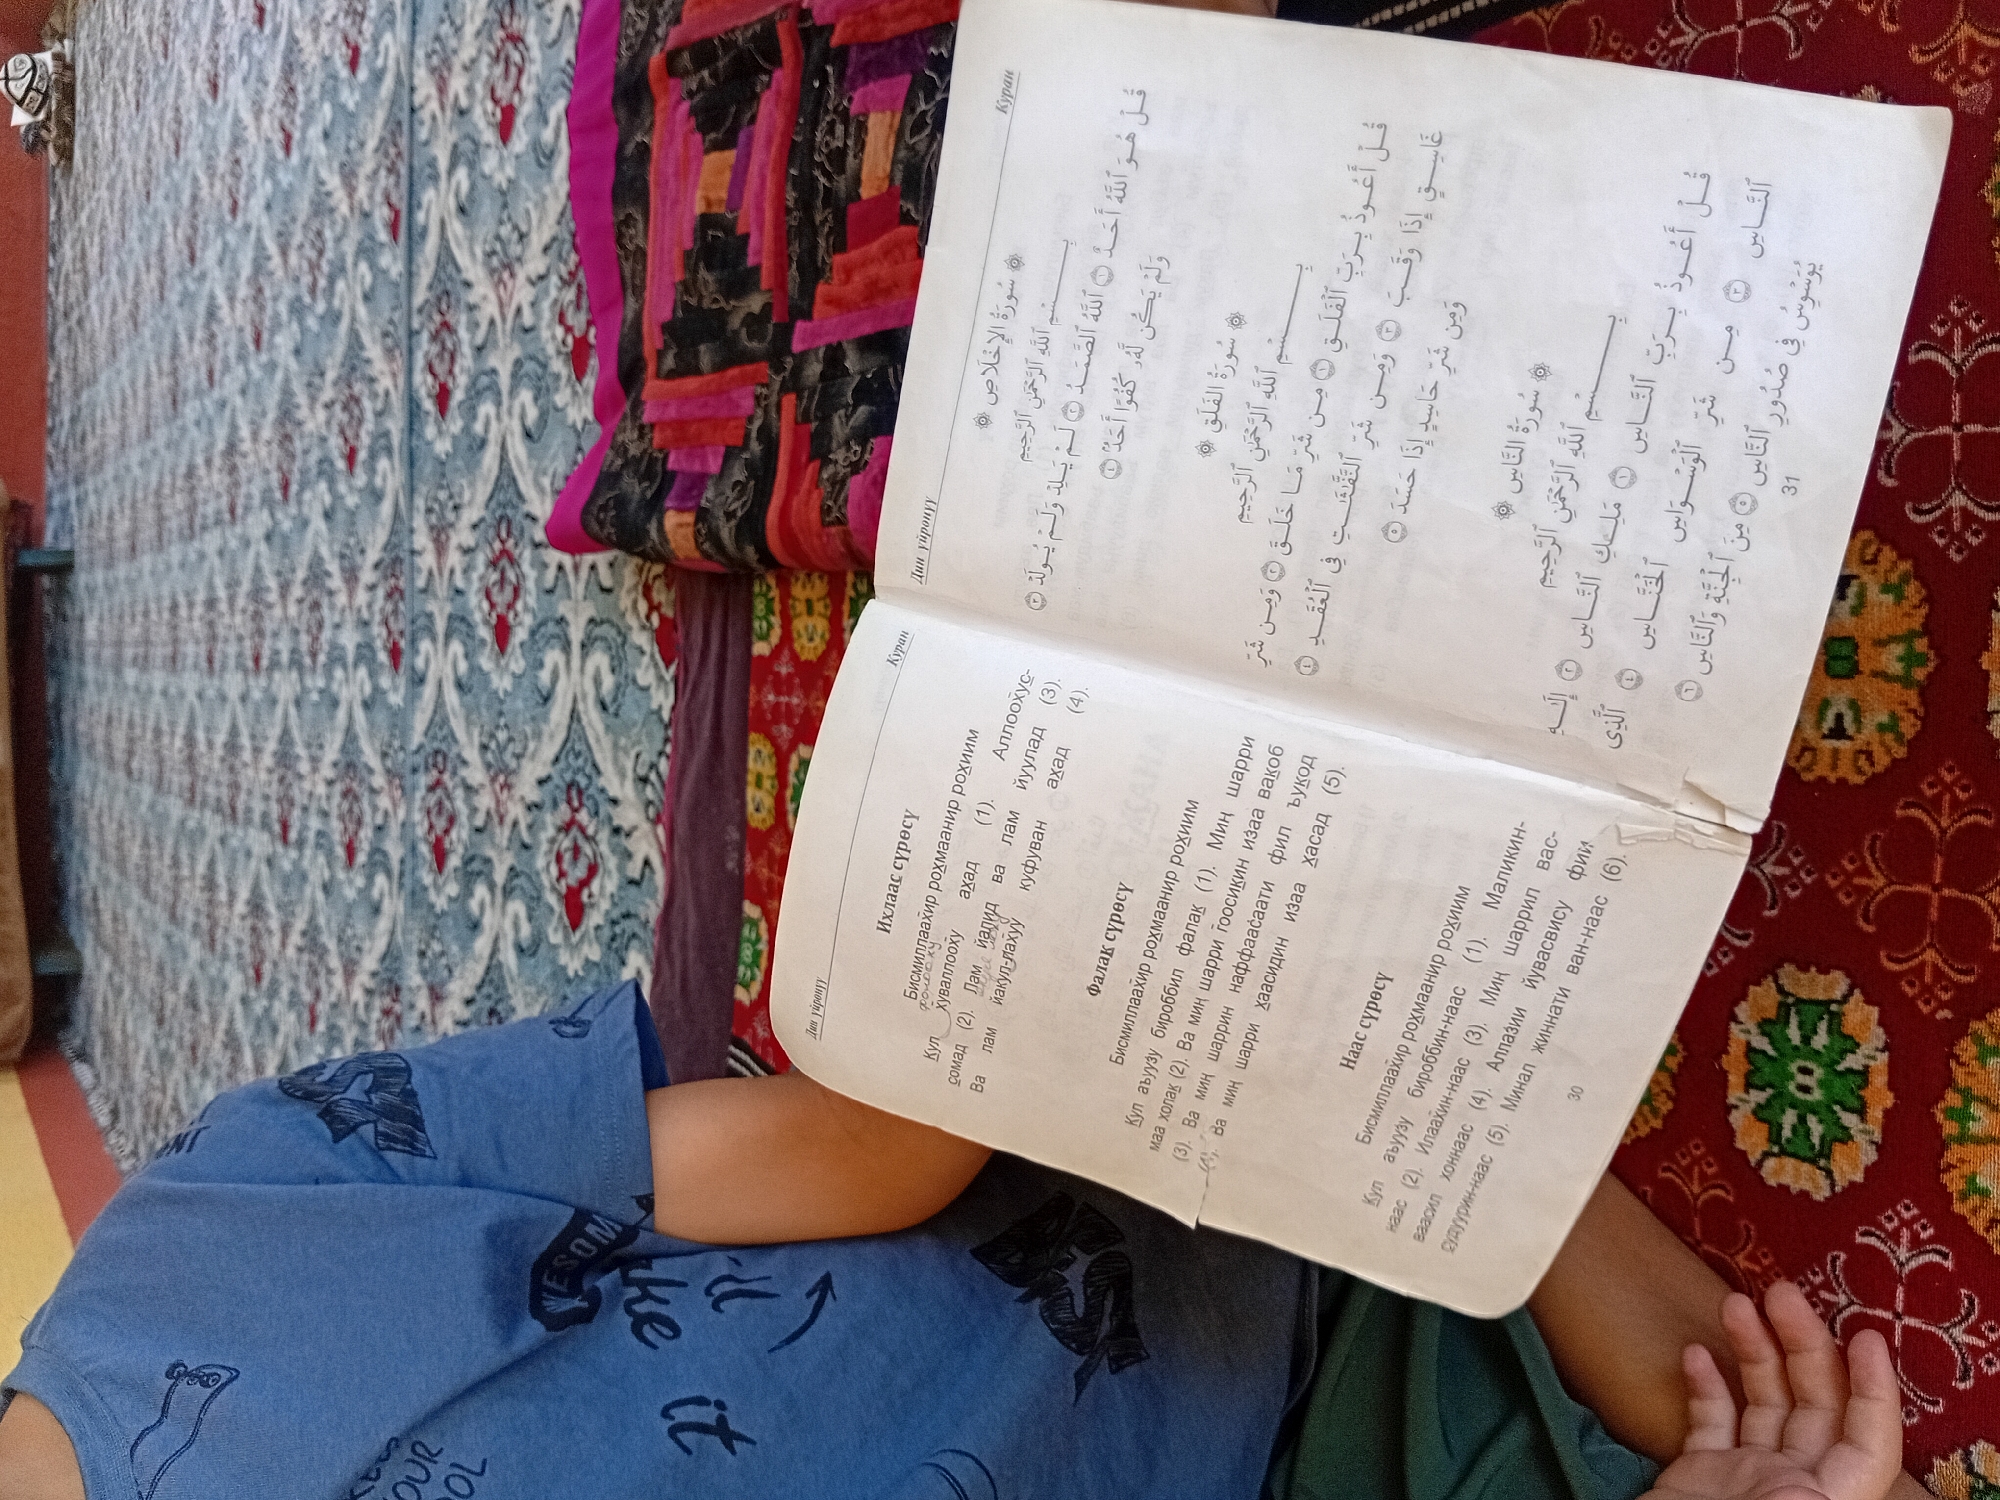 Дин үйрөнүү Куран
Ихлаас сүрөсү
Бисмиллаахир рохмаанир рохиим
Кул хуваллооху ахад (1). Аллоохус-
сомад (2). Лам йалид ва лам йуулад (3).
Ва лам йакул-лахуу куфуван ахад (4).
Фалак сүрөсү
Бисмиллаахир рохмаанир рохиим
Кул аъуузу бироббил фалак (1). Миң шарри
маа холак (2). Ва миң шарри гоосикин изаа вакоб
(3). Ва миң шаррин наффаасаати фил ъукод
(4). Ва миң шарри хаасидин изаа хасад (5).
Наас сүрөсү
Бисмиллаахир рохмаанир рохиим
Кул аъуузу бироббин-наас (1). Маликин-
наас (2). Илаахин-наас (3). Миң шаррил вас-
ваасил хоннаас (4). Аллазии йувасвису фии
судуурин-наас (5). Минал жиннати ван-наас (6).
30
Дин үйрөнүү Куран
سُورَةُ الإِخْلَاصِ
بِسْمِ ٱللَّهِ ٱلرَّحْمَٰنِ ٱلرَّحِيمِ
قُلْ هُوَ ٱللَّهُ أَحَدٌ ١ ٱللَّهُ ٱلصَّمَدُ ٢ لَمْ يَلِدْ وَلَمْ يُولَدْ ٣
وَلَمْ يَكُن لَّهُۥ كُفُوًا أَحَدٌۢ ٤
سُورَةُ الفَلَقِ
بِسْمِ ٱللَّهِ ٱلرَّحْمَٰنِ ٱلرَّحِيمِ
قُلْ أَعُوذُ بِرَبِّ ٱلْفَلَقِ ١ مِن شَرِّ مَا خَلَقَ ٢ وَمِن شَرِّ
غَاسِقٍ إِذَا وَقَبَ ٣ وَمِن شَرِّ ٱلنَّفَّٰثَٰتِ فِى ٱلْعُقَدِ ٤
وَمِن شَرِّ حَاسِدٍ إِذَا حَسَدَ ٥
سُورَةُ النَّاسِ
بِسْمِ ٱللَّهِ ٱلرَّحْمَٰنِ ٱلرَّحِيمِ
قُلْ أَعُوذُ بِرَبِّ ٱلنَّاسِ ١ مَلِكِ ٱلنَّاسِ ٢ إِلَٰهِ
ٱلنَّاسِ ٣ مِن شَرِّ ٱلْوَسْوَاسِ ٱلْخَنَّاسِ ٤ ٱلَّذِى
يُوَسْوِسُ فِى صُدُورِ ٱلنَّاسِ ٥ مِنَ ٱلْجِنَّةِ وَٱلنَّاسِ ٦
31
it